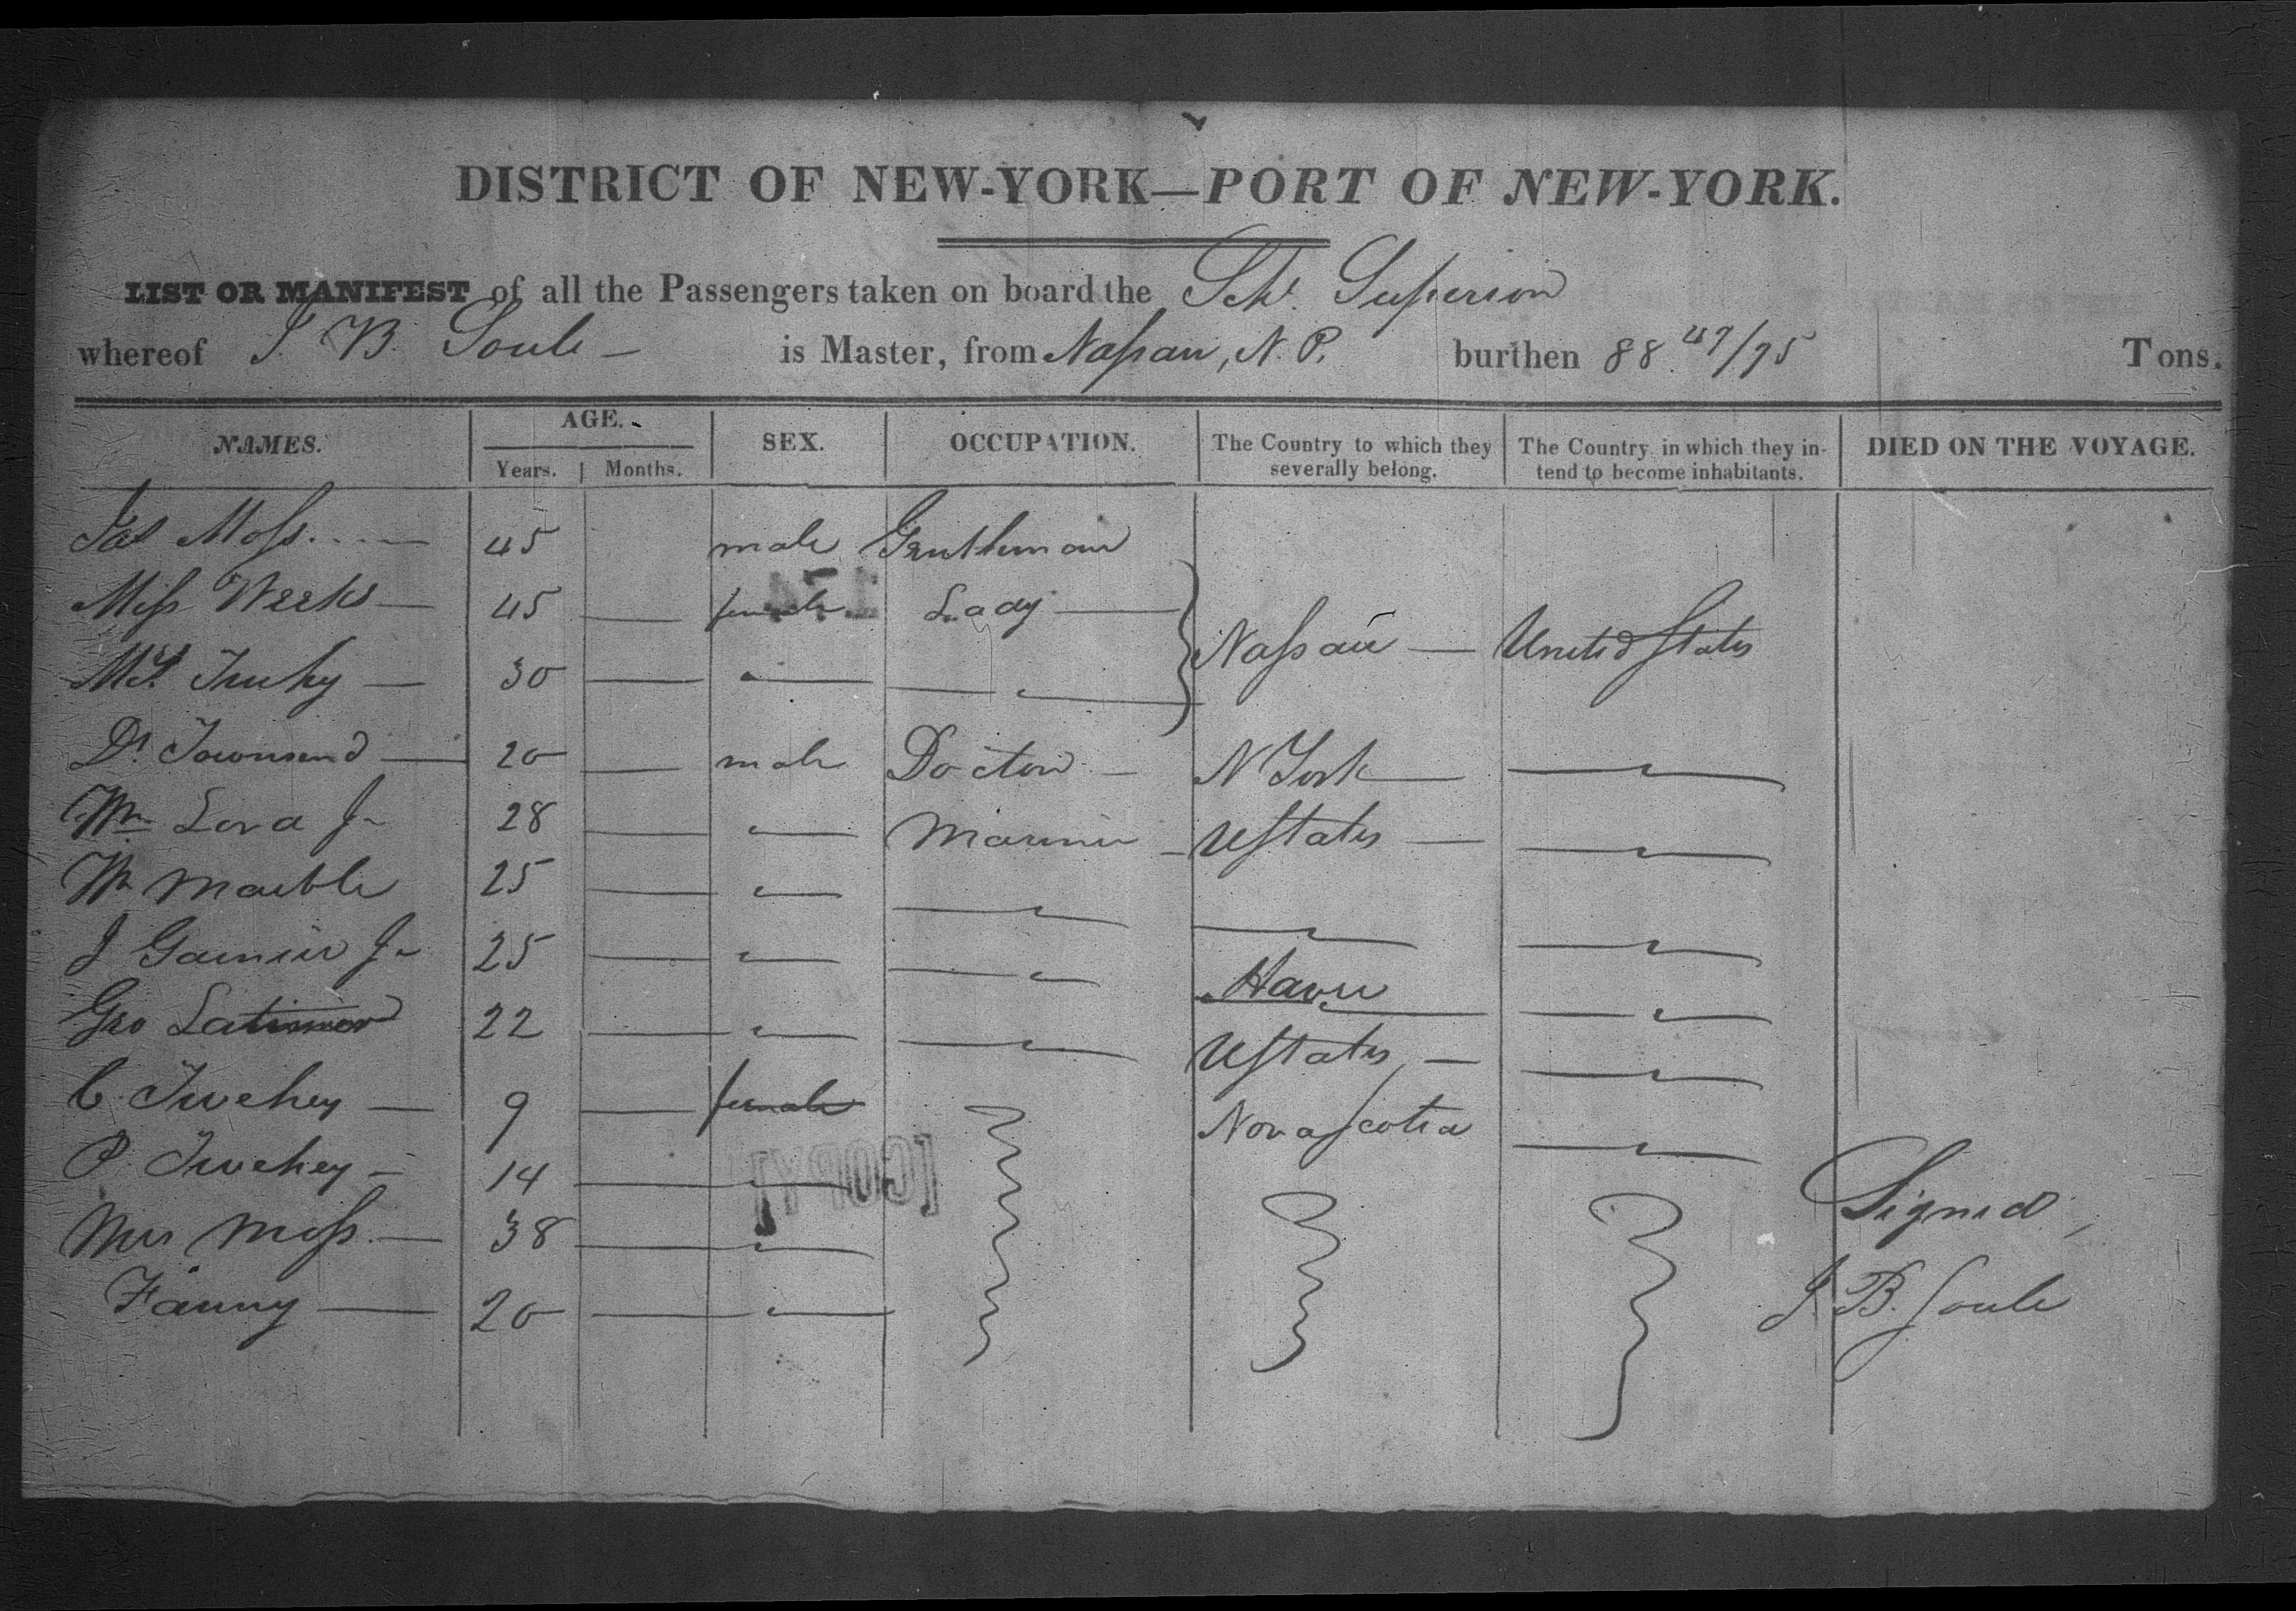 DISTRICT OF NEW-YORK—PORT OF NEW-YORK.
LIST OR MANIFEST of all the Passengers taken on board the Schr Superior
whereof J. B. Soule — is Master, from Nassau, N. P. burthen 88 47/95 Tons.
NAMES. AGE. SEX. OCCUPATION. The Country to which they severally belong. The Country in which they intend to become inhabitants. DIED ON THE VOYAGE.
Years. Months.
Jas Moss 45 male Gentleman
Miss Weeks 45 female Lady
Nassau — United States
30
Dr Townsend 20 male Doctor N York
Wm Jr 28 Mariner UStates
Wm Marble 25
J Jr 25 Havre
Geo Latimer 22 UStates
C. Twehey 9 female Nova Scotia
P. Twehey 14
[COPY]
Mrs Moss 38
Fanny 20
Signed
J B. Soule